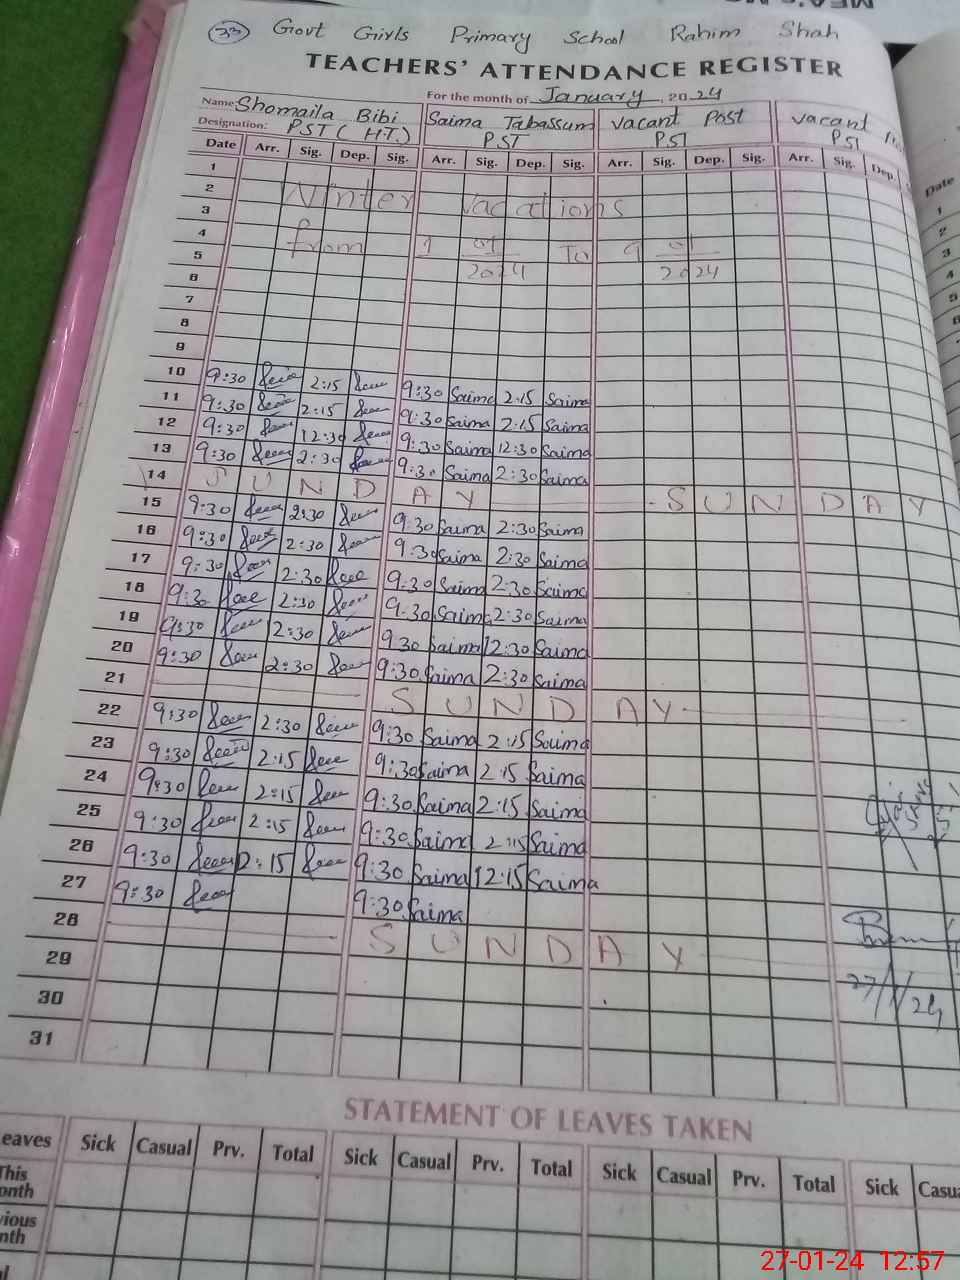 33 Govt Girls Primary School Rahim Shah
TEACHERS' ATTENDANCE REGISTER
For the month of January, 2024
Name: Shomaila Bibi Saima Tabassum Vacant Post vacant
Designation: PST (H.T.) PST PST PST
Date Arr. Sig. Dep. Sig. Arr. Sig. Dep. Sig. Arr. Sig. Dep. Sig. Arr. Sig. Dep
1
2 Winter vacations
3
4 from 1 01 2024 To 9 01 2024
5
6
7
8
9
10 9:30 2:15 9:30 Saima 2:15 Saima
11 9:30 2:15 9:30 Saima 2:15 Saima
12 9:30 12:30 9:30 Saima 12:30 Saima
13 9:30 2:30 9:30 Saima 2:30 Saima
14 SUNDAY SUNDAY
15 9:30 2:30 9:30 Saima 2:30 Saima
16 9:30 2:30 9:30 Saima 2:30 Saima
17 9:30 2:30 9:30 Saima 2:30 Saima
18 9:30 2:30 9:30 Saima 2:30 Saima
19 9:30 2:30 9:30 Saima 12:30 Saima
20 9:30 2:30 9:30 Saima 2:30 Saima
21 SUNDAY
22 9:30 2:30 9:30 Saima 2:15 Saima
23 9:30 2:15 9:30 Saima 2:15 Saima
24 9:30 2:15 9:30 Saima 2:15 Saima
25 9:30 2:15 9:30 Saima 2:15 Saima
26 9:30 2:15 9:30 Saima 12:15 Saima
27 9:30 9:30 Saima
28 SUNDAY
29
30
31
27/1/24
STATEMENT OF LEAVES TAKEN
eaves Sick Casual Prv. Total Sick Casual Prv. Total Sick Casual Prv. Total Sick Casu
This
onth
vious
nth
Date
1
2
3
4
5
6
27-01-24 12:57